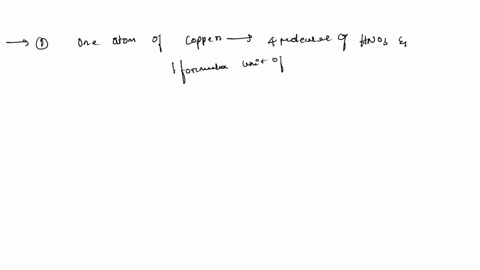 → ① One atom of Copper → 4 molecules of HNO3 &
1 formula unit of